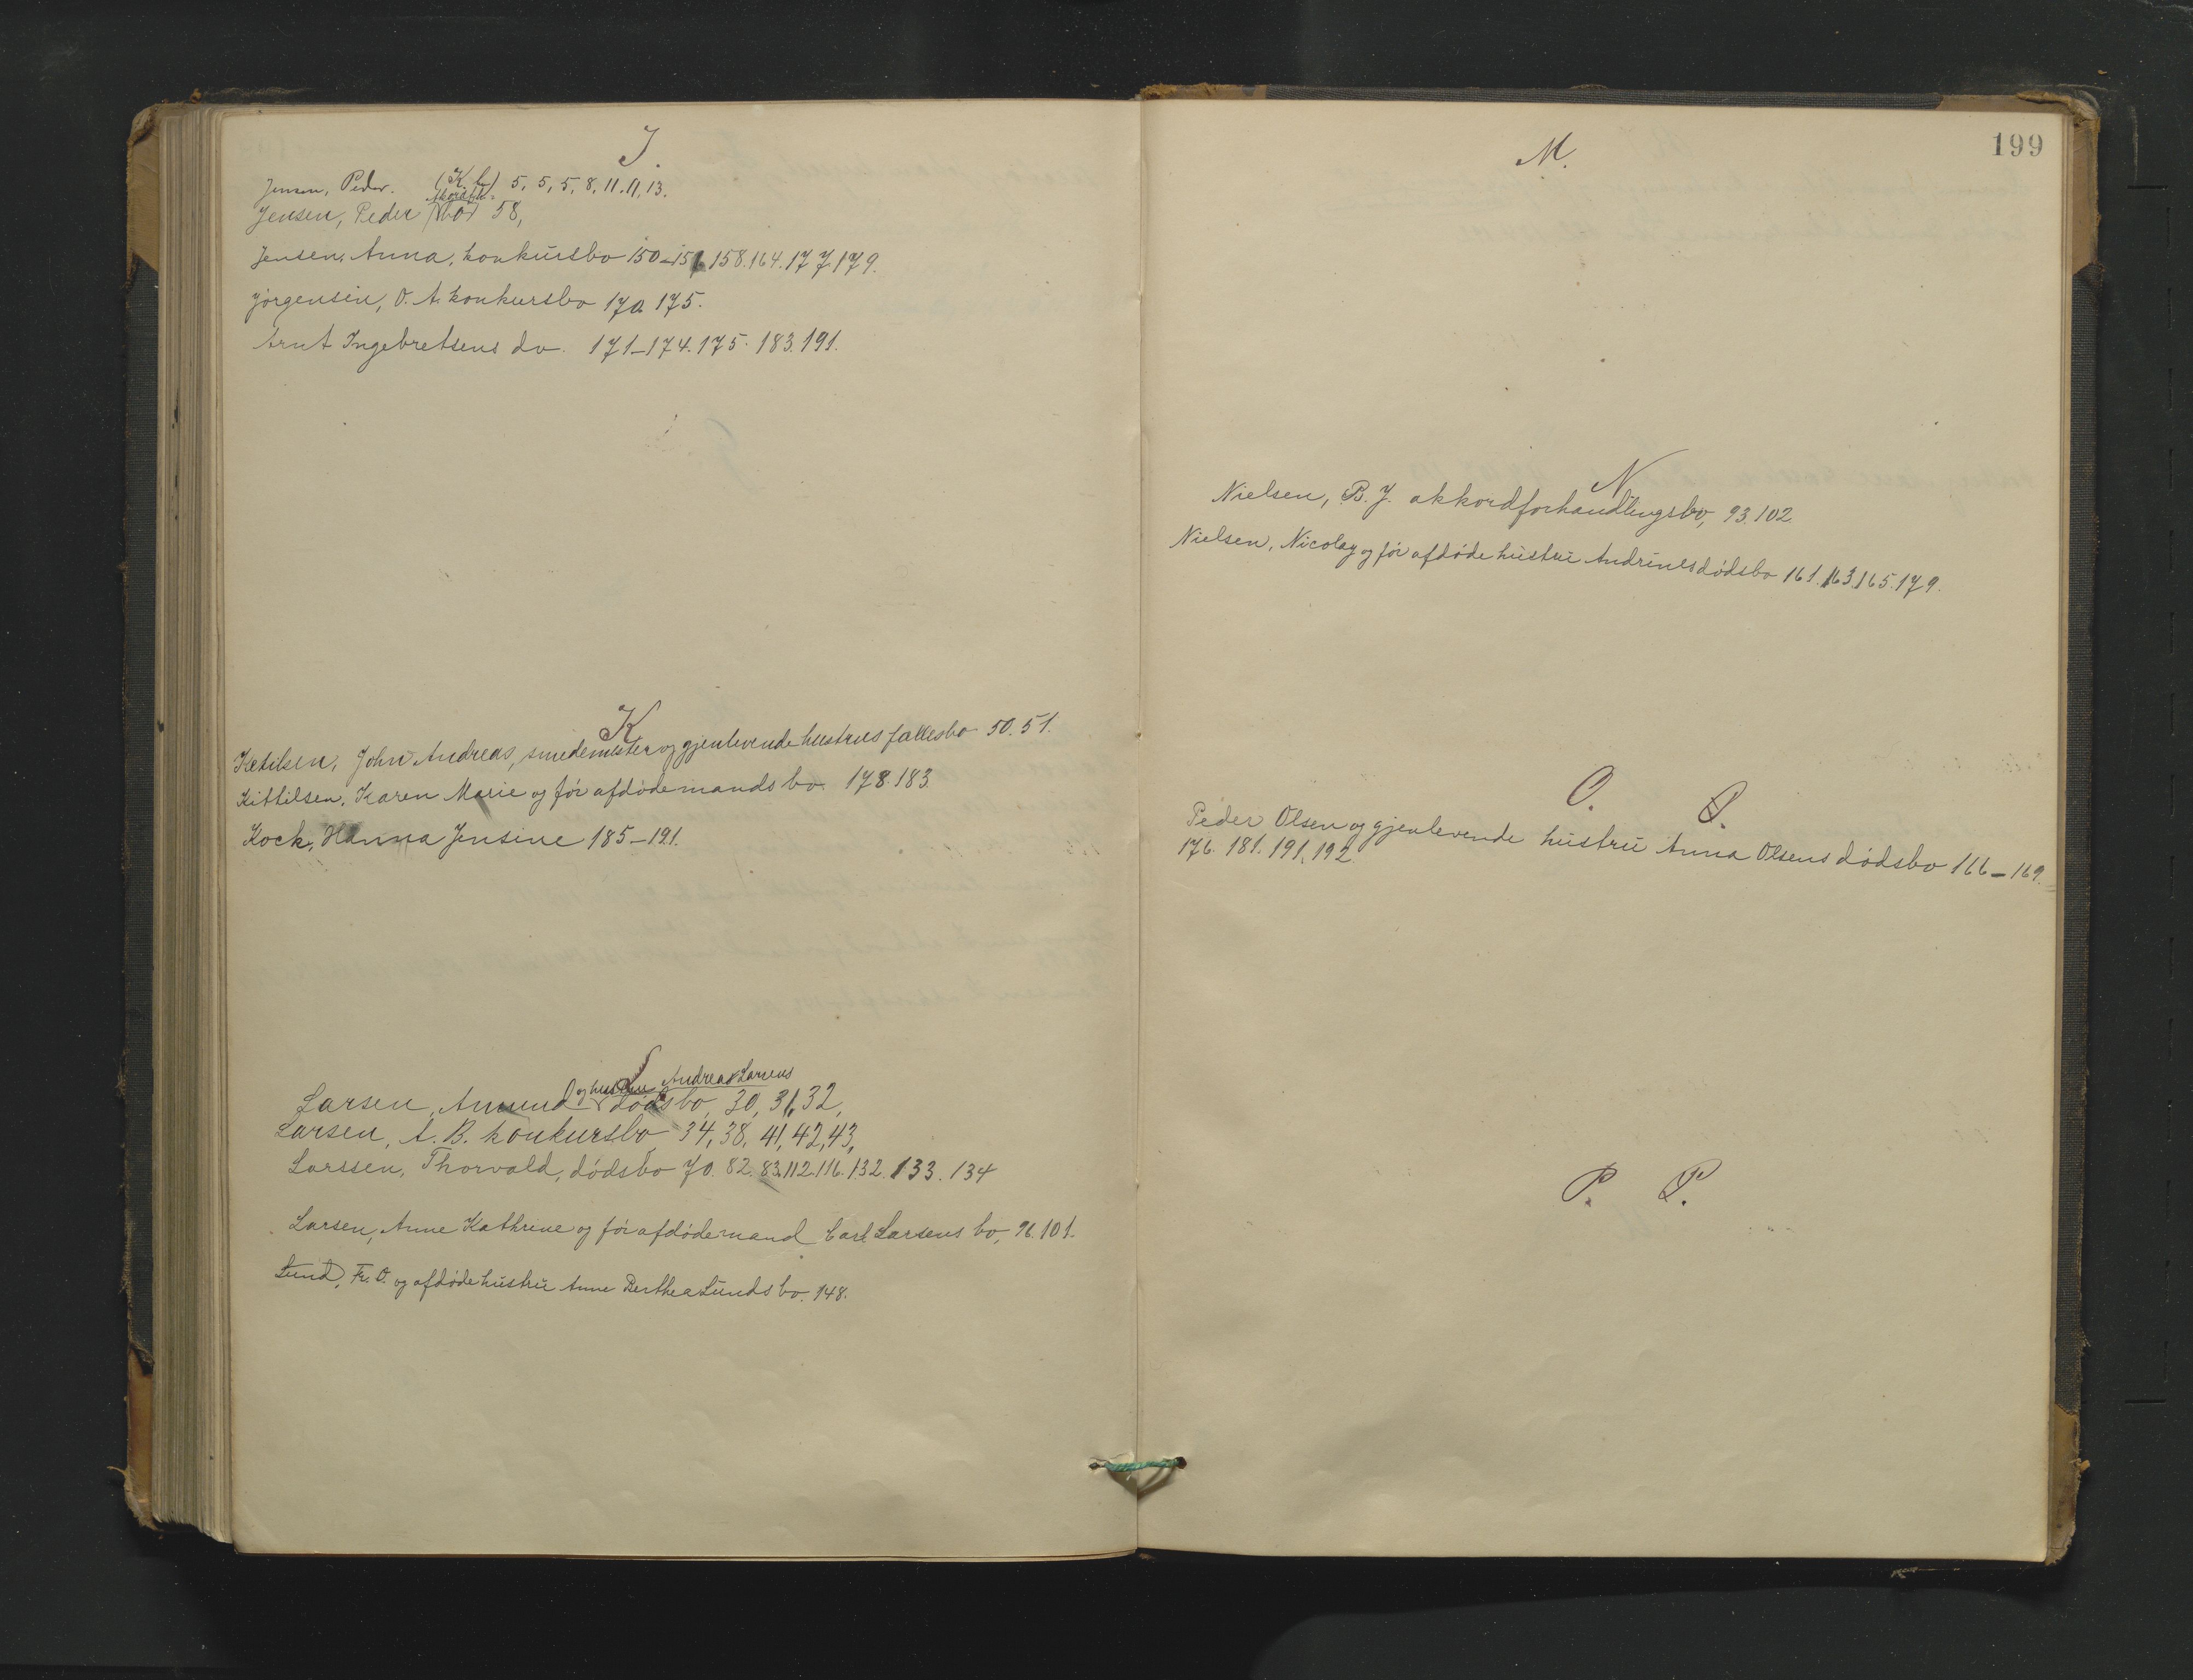 J.
Jensen, Peder. (K. b.) 5, 5, 5, 8, 11. 11, 13.
Jensen, Peder bo 58,
Jensen, Anna, konkursbo 150-151. 158. 164. 177. 179.
Jörgensen, O. A. konkursbo 170. 175.
Arnt Ingebretsens do. 171-174. 175. 183. 191.
K
Ketilsen, John Andreas, smedemester og gjenlevende hustrus fællesbo 50. 51.
Kittilsen, Karen Marie og før afdøde mands bo. 178. 183.
Kock, Hanna Jensine 185-191.
L
og hustru Andrea Larsens
Larsen, Amund dødsbo, 30, 31, 32,
Larsen, A. B. konkursbo 34, 38, 41, 42, 43,
Larssen, Thorvald, dødsbo 70. 82. 83. 112. 116. 132. 133. 134
Larsen, Anne Kathrine og før afdøde mand Carl Larsens bo, 96. 101.
Lund, Fr. O. og afdøde hustru Anne Berthea Lunds bo. 148.
199
M.
N
Nielsen, B. J. akkordforhandlingsbo, 93. 102.
Nielsen, Nicolay og før afdøde hustru Andrines dødsbo 161. 163. 165. 179.
O. Ø.
Peder Olsen og gjenlevende hustru Anna Olsens dødsbo 166-169.
176. 181. 191. 192.
P. P.